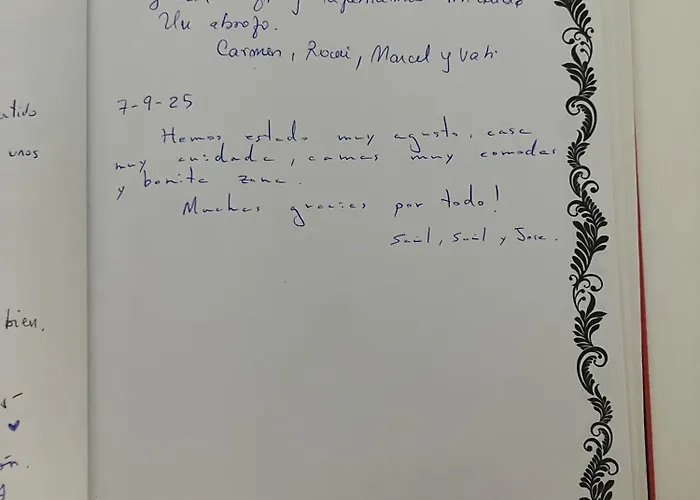 Un abrazo.
Carmen, Rocai, Marcel y Vati
7-9-25
Hemos estado muy agusto, casa
muy cuidada, camas muy comodas
y bonita zona.
Muchas gracias por todo!
Saúl, Saúl y Jose.
unos
bien.